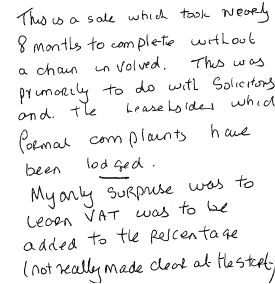 This is a sale which took nearly
8 months to complete without
a chain involved. This was
primarily to do with Solicitors
and. the Leaseholder which
formal complaints have
been lodged.
My only surprise was to
learn VAT was to be
added to the percentage
(not really made clear at the start)